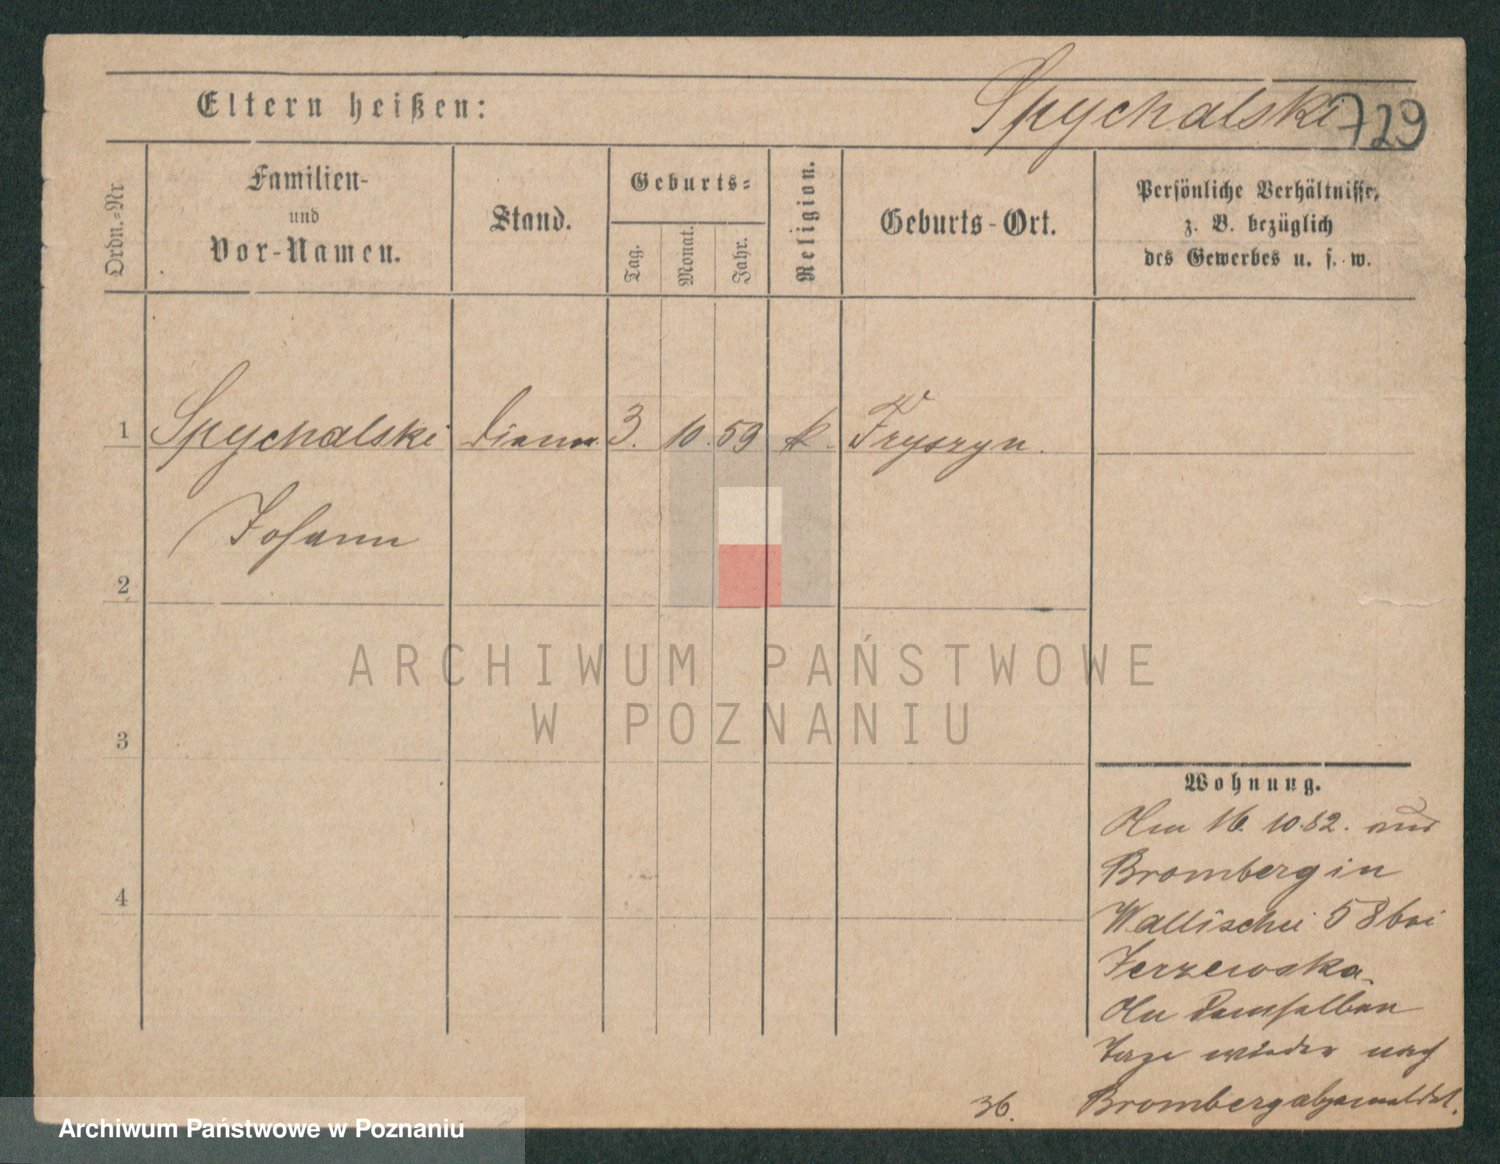 Eltern heißen:
Spychalski 729
Ordn.-Nr.
Familien-
und
Vor-Namen.
Stand.
Geburts-
Tag.
Monat.
Jahr.
Religion.
Geburts-Ort.
Persönliche Verhältnisse,
z. B. bezüglich
des Gewerbes u. s. w.
1 Spychalski Diener 3. 10. 59 k. Tryszyn.
Johann
2
3
4
ARCHIWUM PAŃSTWOWE
W POZNANIU
Wohnung.
Am 16. 10. 82. aus
Bromberg in
Wallischei 58 bei
Jerzewska.
An demselben
Tage wieder nach
Bromberg abgemeldet.
36.
Archiwum Państwowe w Poznaniu